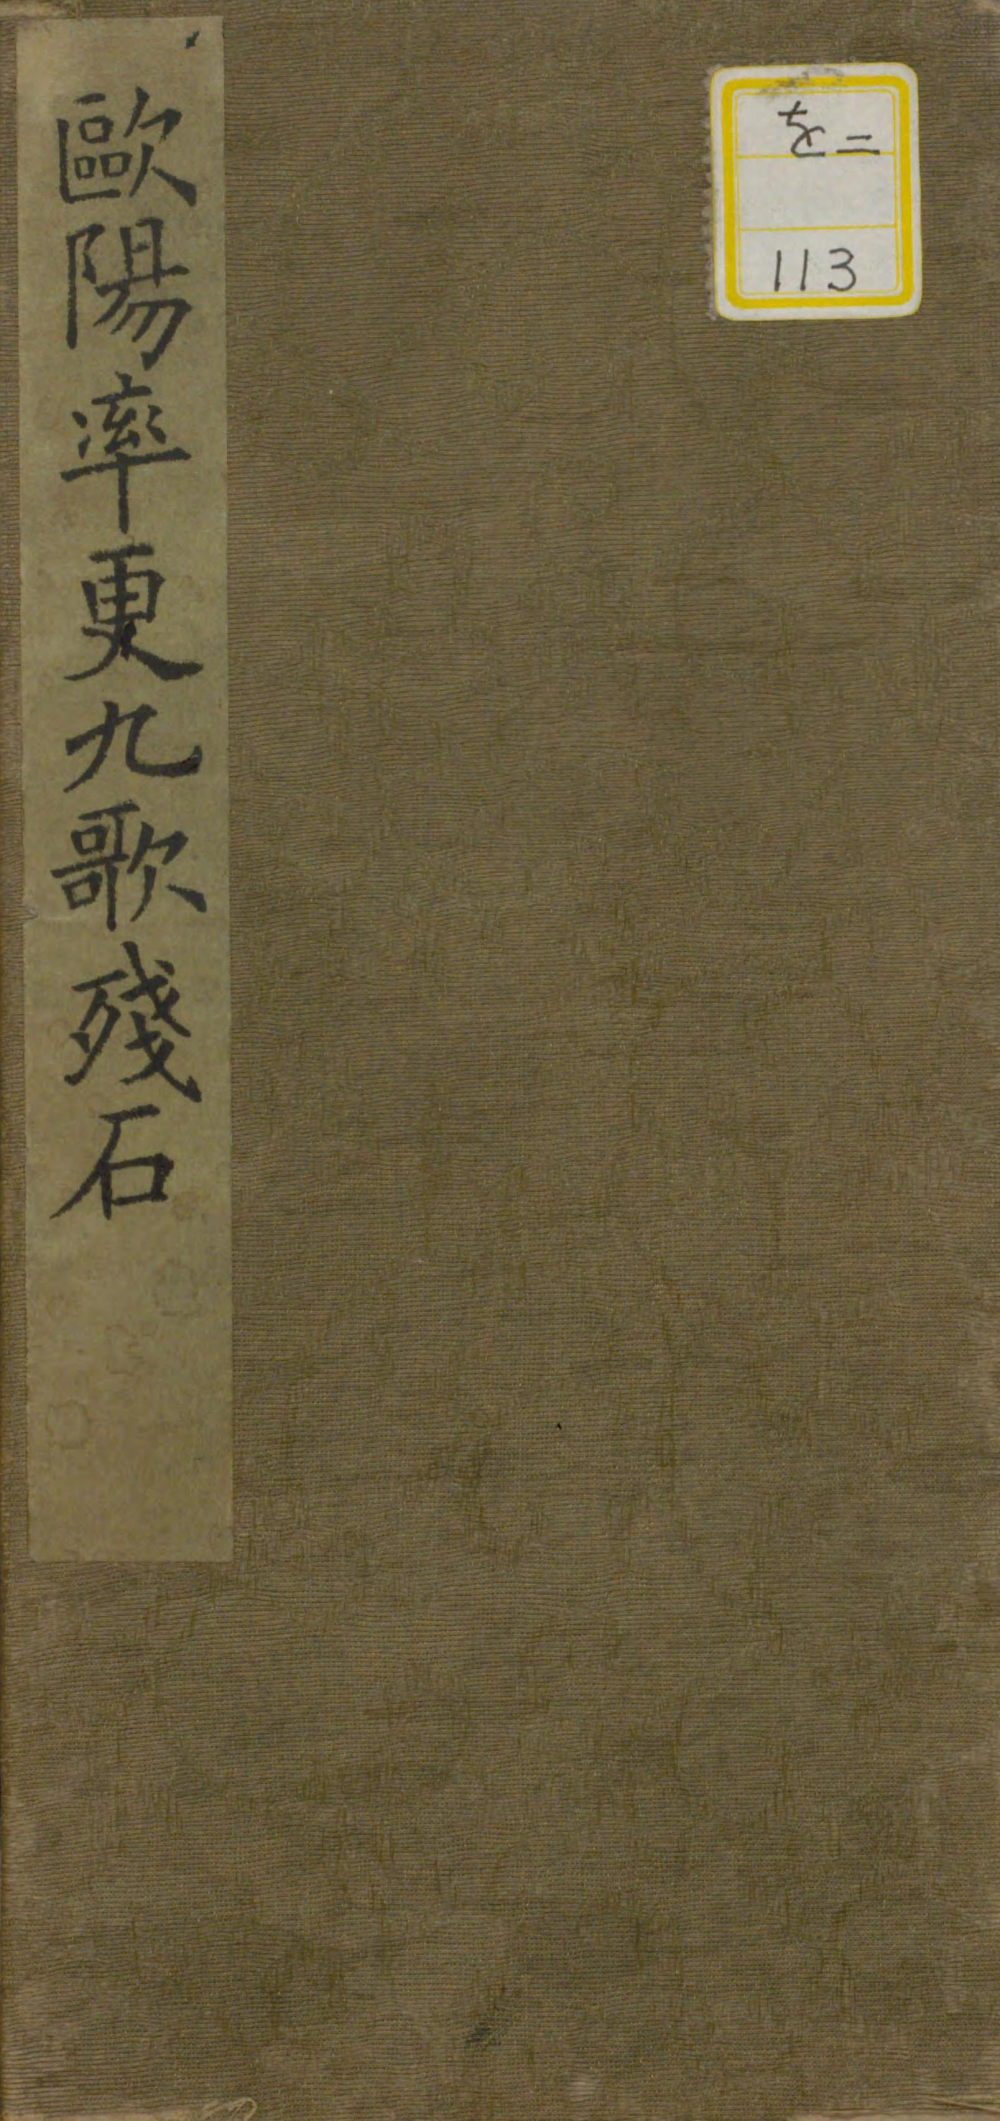 を二
113
歐陽率更九歌殘石